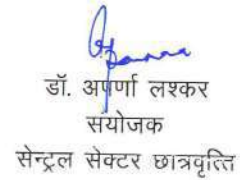 डॉ. अपर्णा लश्कर
संयोजक
सेन्ट्रल सेक्टर छात्रवृत्ति